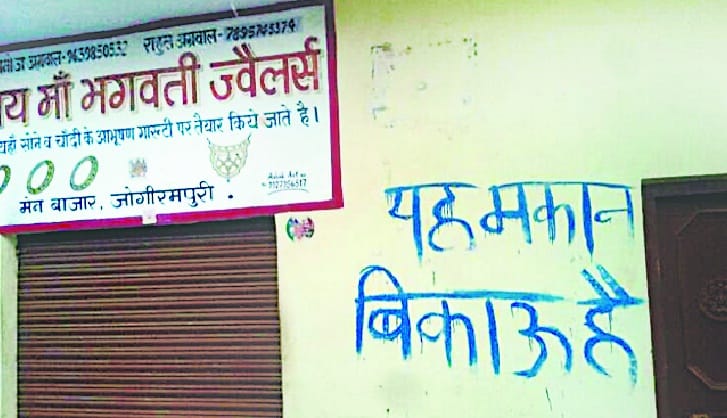 अग्रवाल-9439850532 राहुल अग्रवाल-7895745374
जय माँ भगवती ज्वैलर्स
यहाँ सोने व चाँदी के आभूषण गारन्टी पर तैयार किये जाते है।
मेन बाजार, जोगीरमपुरी.
यह मकान
बिकाऊ है